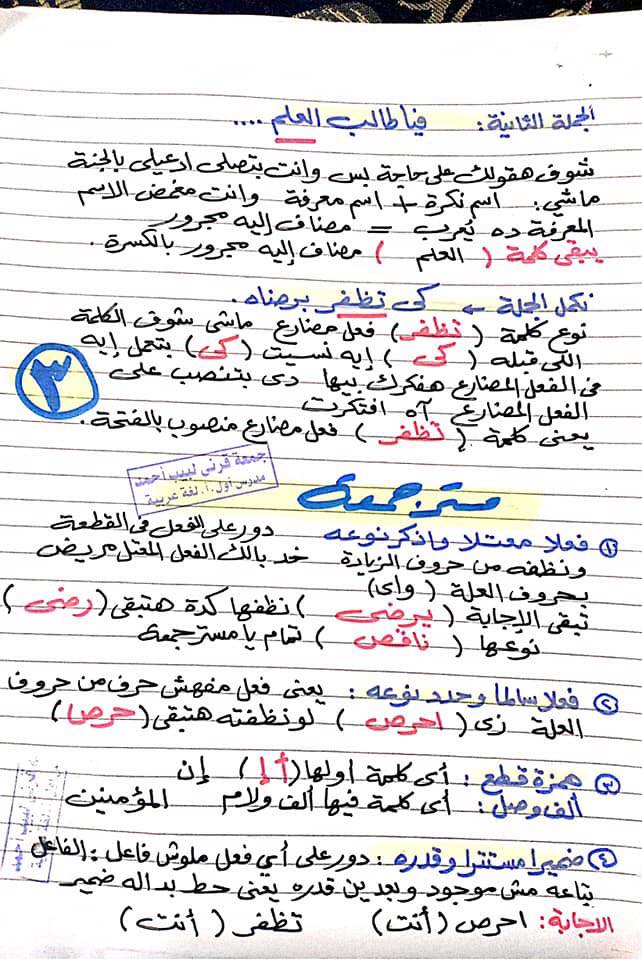 الجملة الثانية: فيا طالب العلم ....
شوف هقولك على حاجة بس وانت بتصلى ادعيلى بالجنة
ماشي: اسم نكرة + اسم معرفة وانت مغمض الاسم
المعرفة ده يُعرب = مضاف إليه مجرور
يبقى كلمة ( العلم ) مضاف إليه مجرور بالكسرة .
نكمل الجملة ← كى تظفر برضاه.
نوع كلمة ( تظفر ) فعل مضارع ماشى شوف الكلمة
اللى قبله ( كى ) إيه نسيت ( كى ) بتعمل إيه
فى الفعل المضارع هفكرك بيها دى بتنصب على
الفعل المضارع آه افتكرت
يعنى كلمة ( تظفر ) فعل مضارع منصوب بالفتحة .
٣
جمعة قرنى لبيب أحمد
مدرس أول . أ. لغة عربية
مستر جمعه
١ فعلا معتلا واذكر نوعه دور على الفعل فى القطعة
ونظفه من حروف الزيادة خد بالك الفعل المعتل مريض
بحروف العلة ( واى )
تبقى الإجابة ( يرضى ) نظفها كدة هتبقى ( رضى )
نوعها ( ناقص ) تمام يا مستر جمعه
٢ فعلا سالما وحدد نوعه : يعنى فعل مفهش حرف من حروف
العلة زى ( احرص ) لو نظفته هتبقى ( حرص )
٣ همزة قطع : أى كلمة اولها ( أ إ ) إن
ألف وصل : أى كلمة فيها ألف ولام المؤمنين
٤ ضميرا مستترا وقدره : دور على أي فعل ملوش فاعل : الفاعل
بتاعه مش موجود وبعدين قدره يعنى حط بداله ضمير
الاجابة : احرص ( أنت ) تظفر ( أنت )